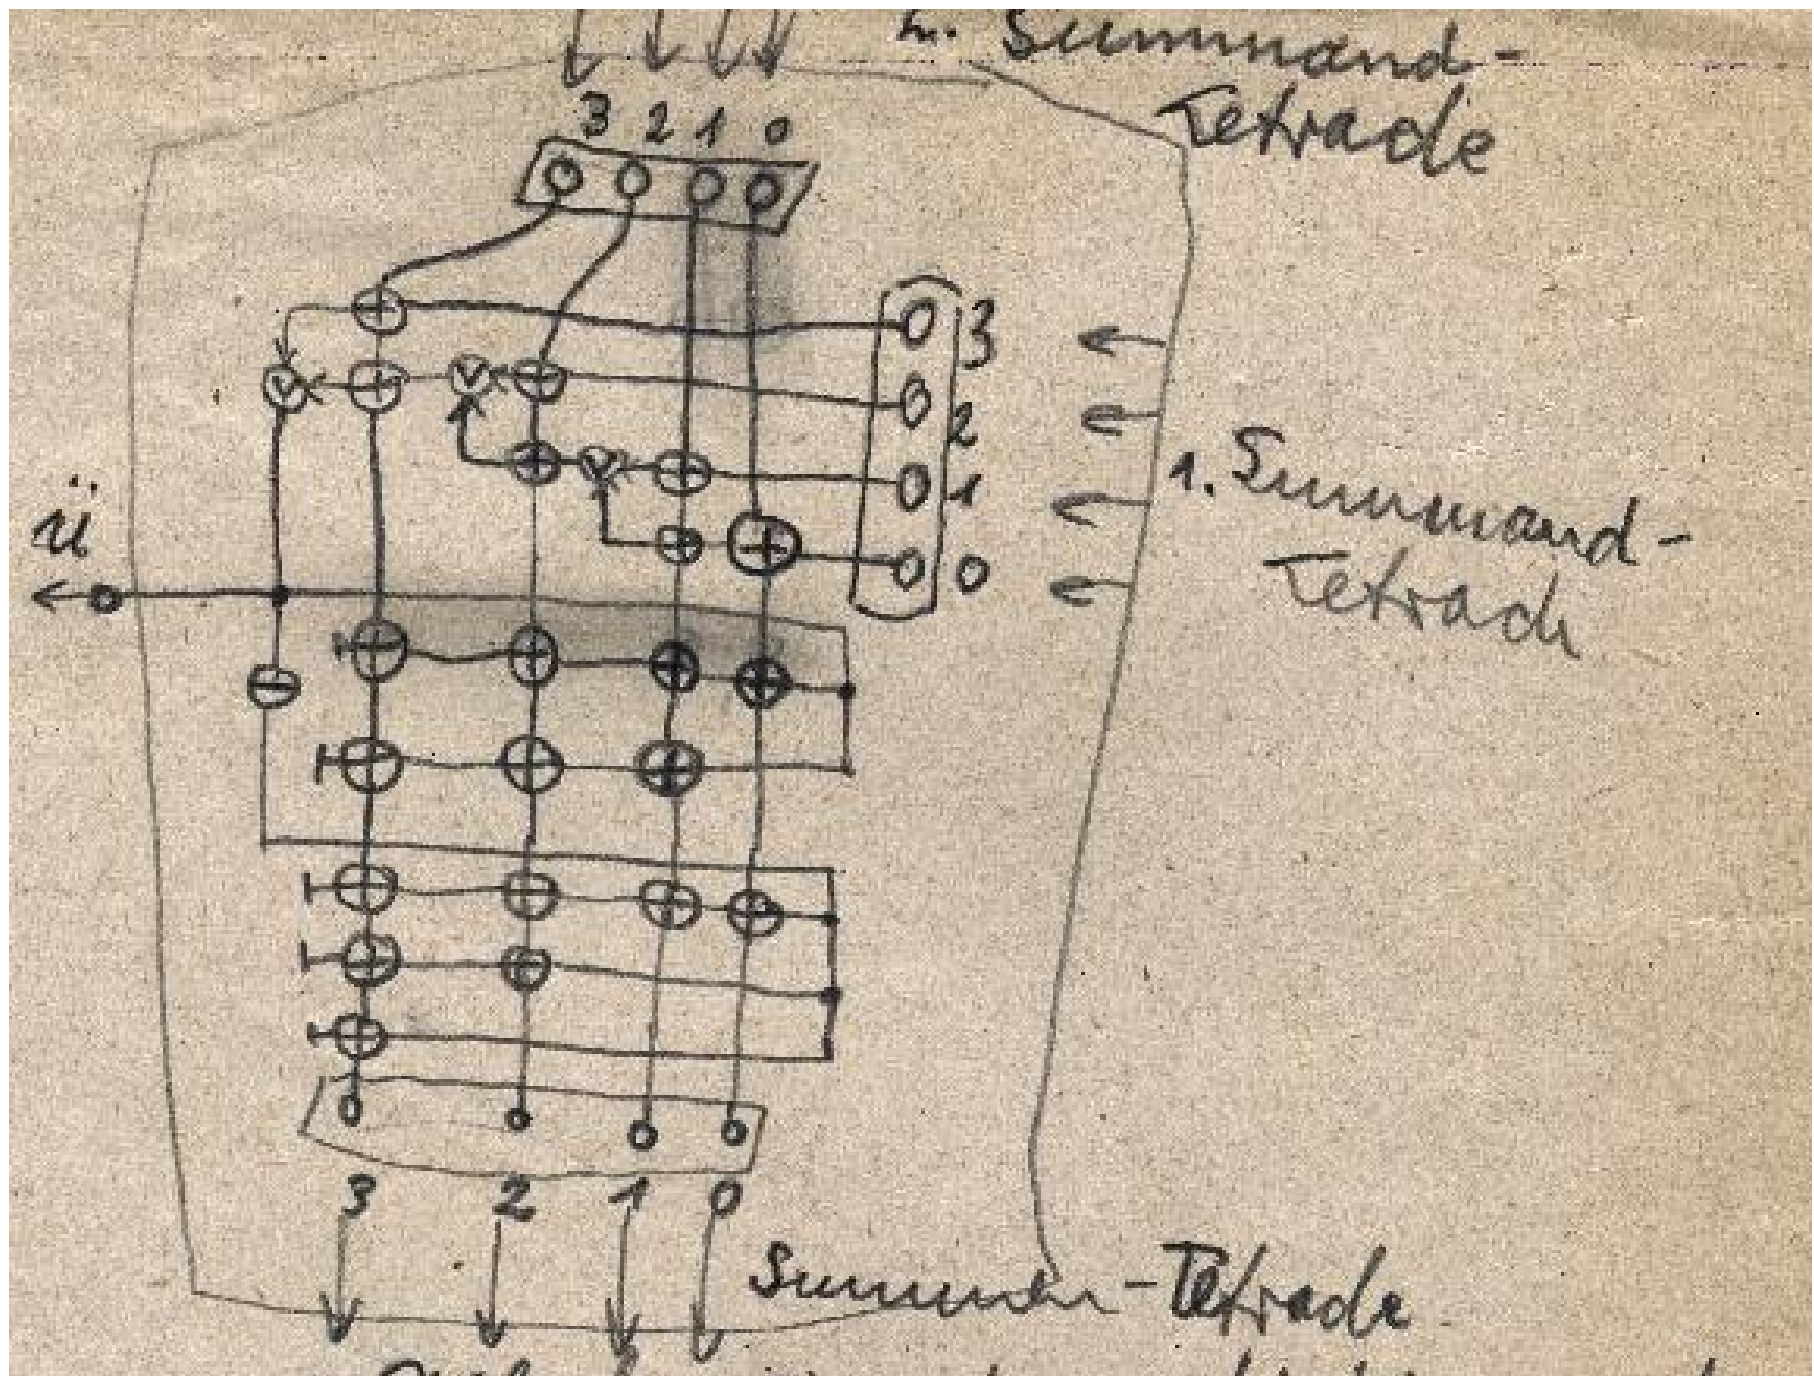 2. Summand-
Tetrade
3 2 1 0
3
2
1
0
1. Summand-
Tetrade
ü
3 2 1 0
Summen-Tetrade